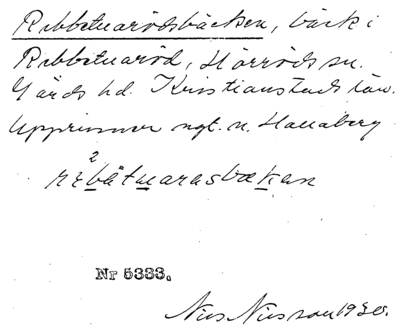 Ribbetuarödsbäcken, bäck i
Ribbetuaröd, Hörröds sn.
Gärds hd. Kristianstads län.
Upprinner ngt. n. Hallaberg
Nr 5333.
Nils Nilsson 1930.